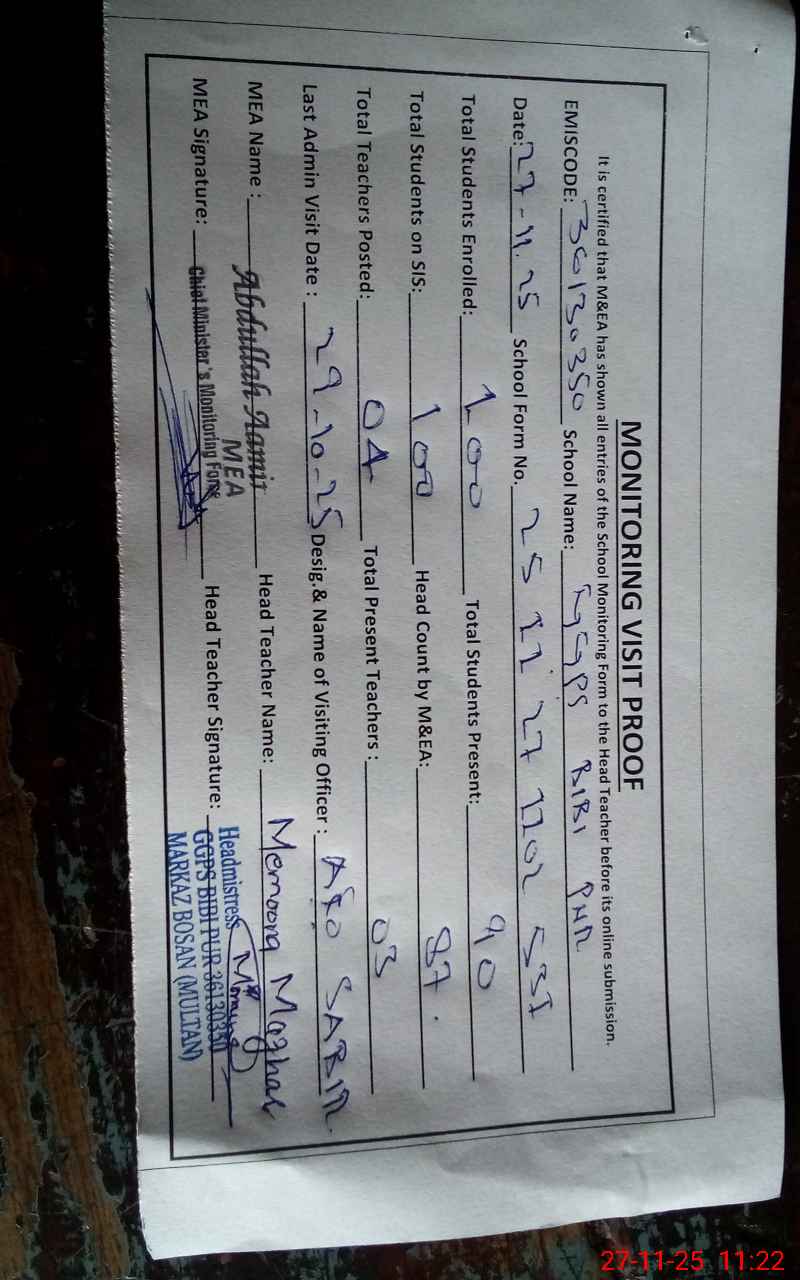 MONITORING VISIT PROOF
It is certified that M&EA has shown all entries of the School Monitoring Form to the Head Teacher before its online submission.
EMISCODE: 36130350 School Name: GGPS BIBI PUR
Date: 27-11-25 School Form No. 25 11 27 1102 531
Total Students Enrolled: 100 Total Students Present: 90
Total Students on SIS: 100 Head Count by M&EA: 87.
Total Teachers Posted: 04 Total Present Teachers : 03
Last Admin Visit Date : 29-10-25 Desig.& Name of Visiting Officer : SABIR
MEA Name : Abdullah Aamir Head Teacher Name: Memoona Mazhar
MEA
MEA Signature: Chief Minister's Monitoring Force Head Teacher Signature:
Headmistress
GGPS BIBI PUR 36130350
MARKAZ BOSAN (MULTAN)
27-11-25 11:22